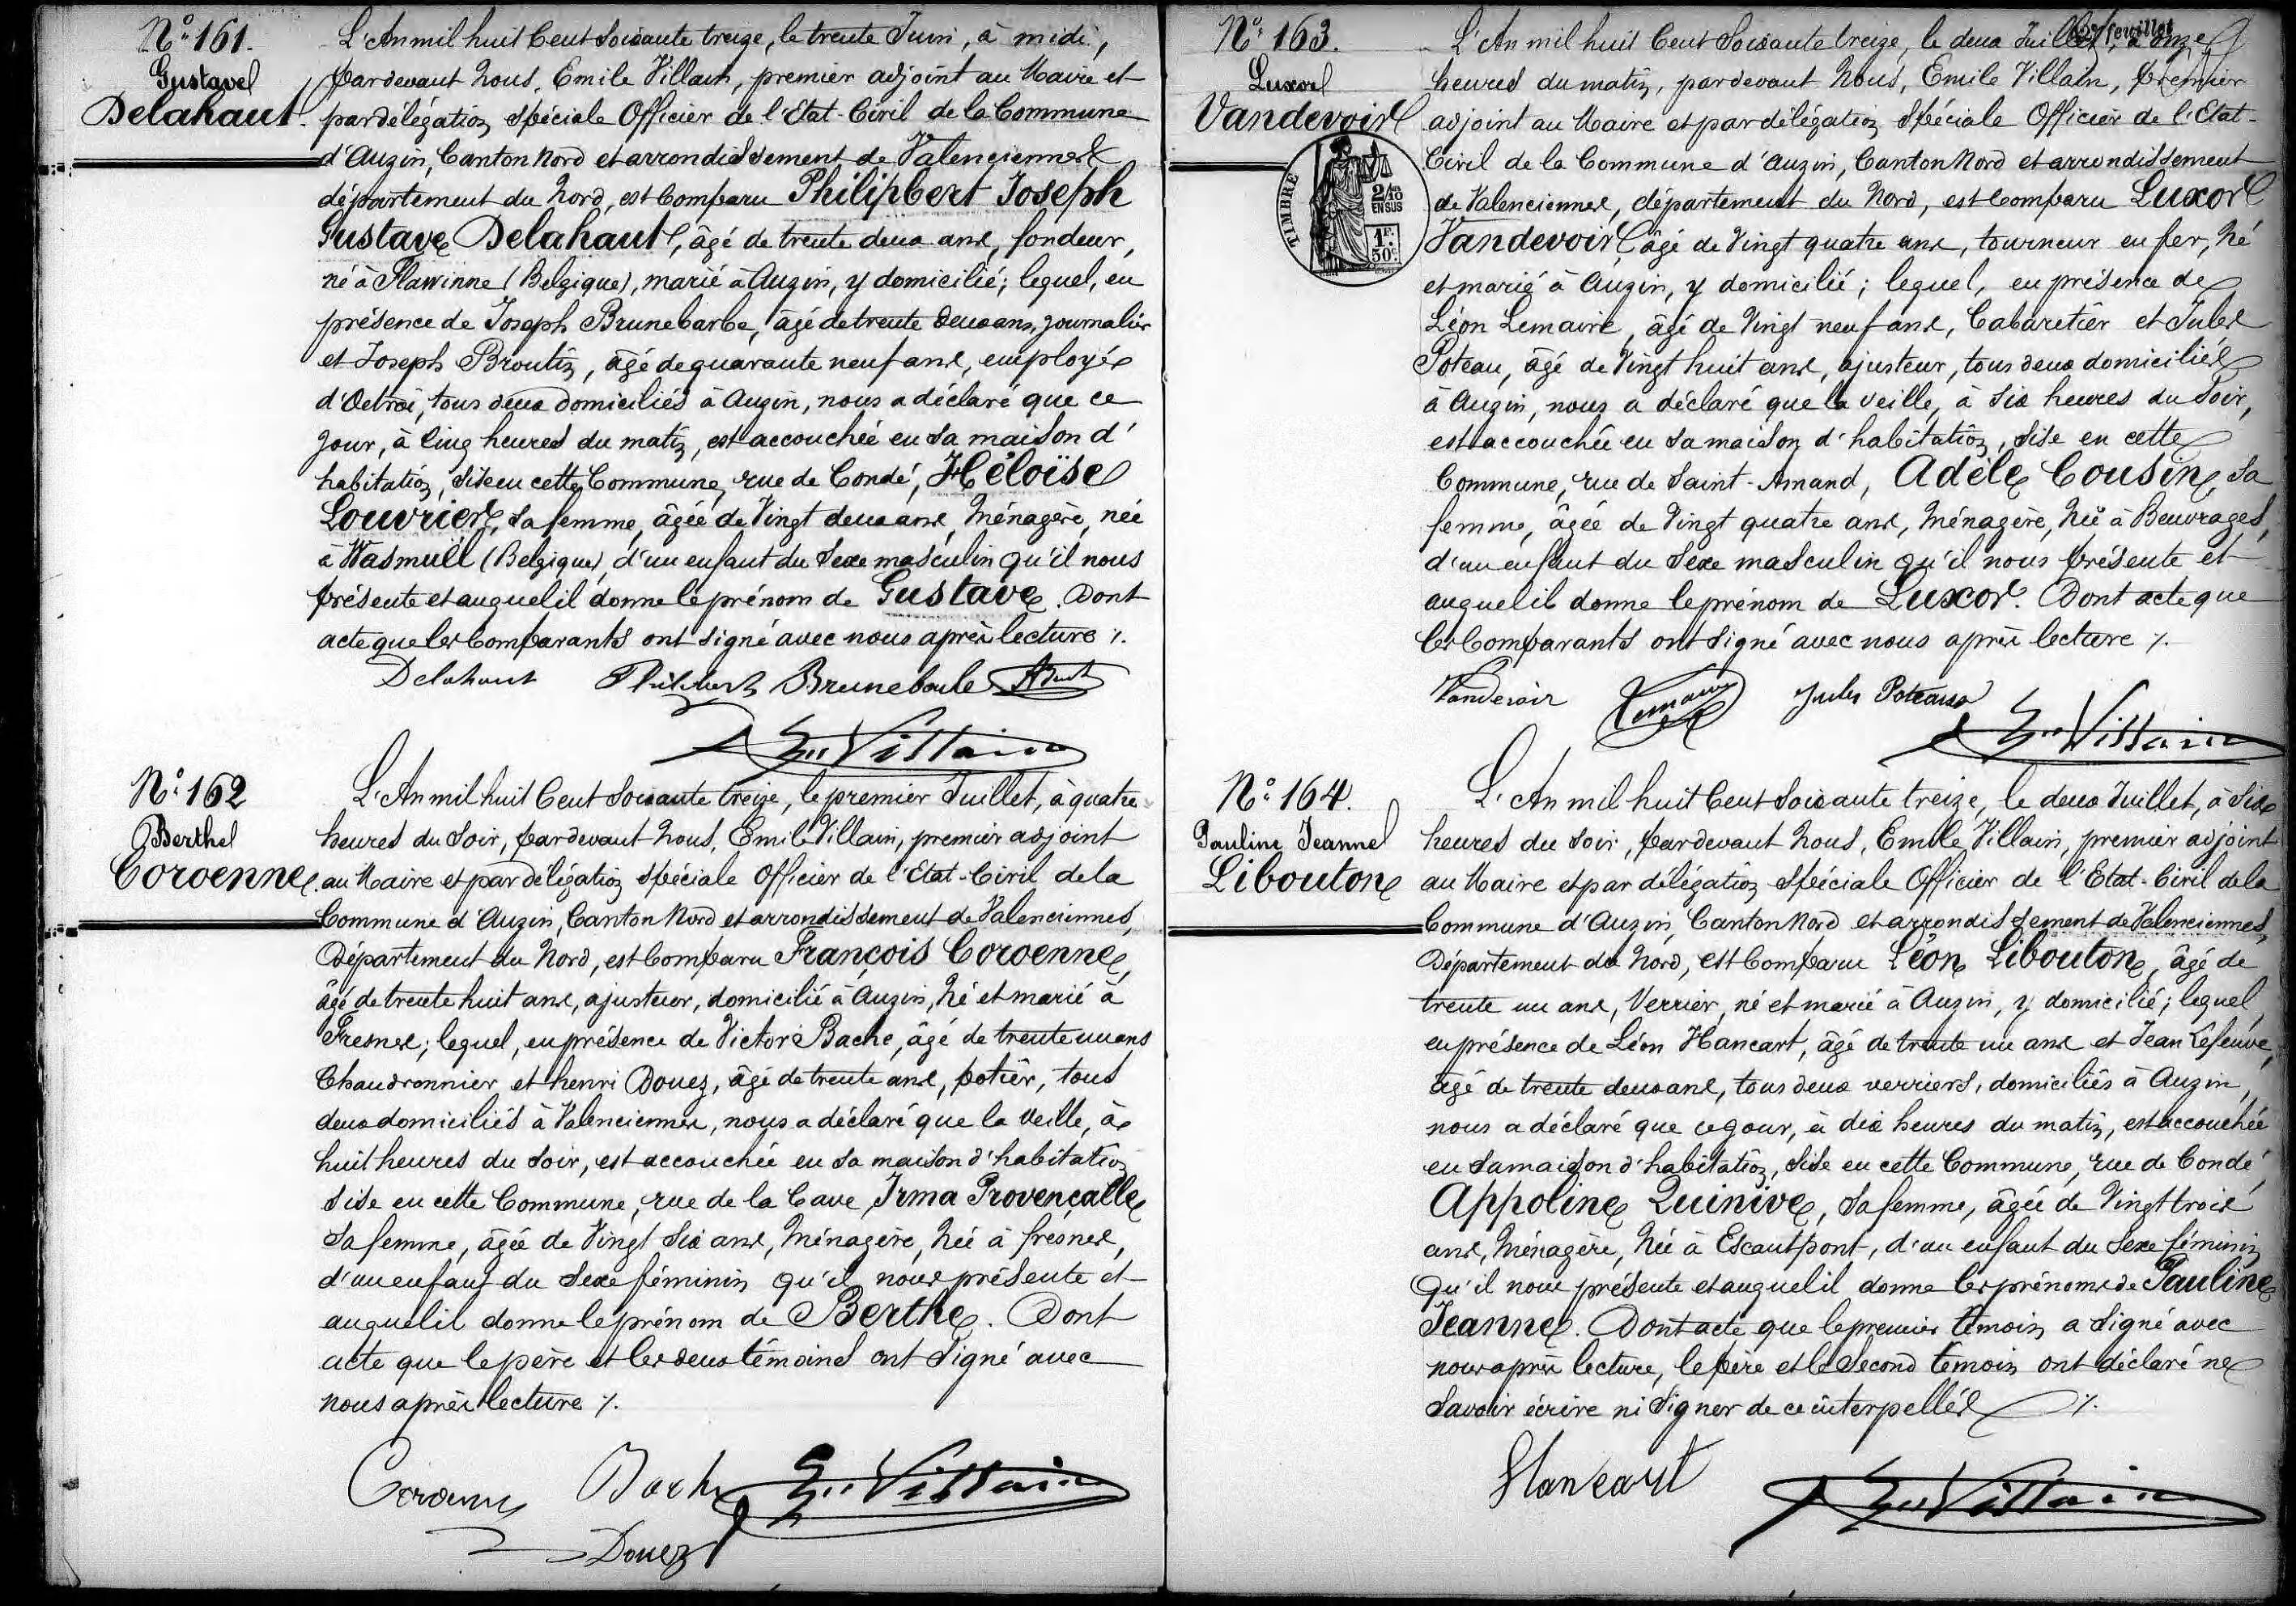 N° 161.
Gustave
Delahaut.
L'An mil huit Cent Soixante treize, le trente Juin, à midi,
pardevant Nous, Emile Villain, premier adjoint au Maire et
par délégation Spéciale Officier de l'Etat-Civil de la Commune
d'Anzin, Canton Nord et arrondissement de Valenciennes
département du Nord, est Comparu Philipbert Joseph
Gustave Delahaut, âgé de trente deux ans, fondeur,
né à Flawinne (Belgique), marié à Anzin, y domicilié; lequel, en
présence de Joseph Brunebarbe, âgé de trente deux ans, journalier
et Joseph Broutin, âgé de quarante neuf ans, employé
d'Octroi, tous deux domiciliés à Anzin, nous a déclaré que ce
jour, à Cinq heures du matin, est accouchée en sa maison d'
habitation, Sise en cette Commune, rue de Condé, Héloïse
Louvrier, sa femme, âgée de Vingt deux ans, Ménagère, née
à Wasmuël (Belgique), d'un enfant du Sexe masculin qu'il nous
présente et auquel il donne le prénom de Gustave. Dont
acte que les Comparants ont signé avec nous après lecture %.
Delahaut Philibert Brunebarbe
Em Villain
N° 162
Berthe
Coroenne.
L'An mil huit Cent Soixante treize, le premier Juillet, à quatre
heures du Soir, pardevant Nous, Emile Villain, premier adjoint
au Maire et par délégation Spéciale Officier de l'Etat-Civil de la
Commune d'Anzin, Canton Nord et arrondissement de Valenciennes,
Département du Nord, est Comparu François Coroenne,
âgé de trente huit ans, ajusteur, domicilié à Anzin, Né et marié à
Fresnes; lequel, en présence de Victor Bache, âgé de trente un ans
Chaudronnier et henri Douez, âgé de trente ans, potier, tous
deux domiciliés à Valenciennes, nous a déclaré que la veille, à
huit heures du Soir, est accouchée en sa maison d'habitation
Sise en cette Commune, rue de la Cave, Irma Provençalle
Sa femme, âgée de Vingt Six ans, Ménagère, Née à fresnes,
d'un enfant du Sexe féminin qu'il nous présente et
auquel il donne le prénom de Berthe. Dont
acte que le père et les deux témoins ont Signé avec
nous après lecture %.
Coroenne Bache Em Villain
Douez
N° 163.
Luxor
Vandevoir
TIMBRE
2/10
EN SUS
1F.
50c.
feuillet
L'An mil huit Cent Soixante treize, le deux Juillet, à onze
heures du matin, pardevant Nous, Emile Villain, premier
adjoint au Maire et par délégation Spéciale Officier de l'Etat-
Civil de la Commune d'Anzin, Canton Nord et arrondissement
de Valenciennes, département du Nord, est Comparu Luxor
Vandevoir, âgé de Vingt quatre ans, tourneur en fer, Né
et marié à Anzin, y domicilié; lequel, en présence de
Léon Lemaire, âgé de Vingt neuf ans, Cabaretier et Jules
Poteau, âgé de Vingt huit ans, ajusteur, tous deux domiciliés
à Anzin, nous a déclaré que la veille, à Six heures du Soir,
est accouchée en sa maison d'habitation, Sise en cette
Commune, rue de Saint-Amand, Adèle Cousin, Sa
femme, âgée de Vingt quatre ans, Ménagère, Née à Beuvrages,
d'un enfant du Sexe masculin qu'il nous présente et
auquel il donne le prénom de Luxor. Dont acte que
les Comparants ont Signé avec nous après lecture %.
Vandevoir Lemaire Jules Poteau
Em Villain
N° 164.
Pauline Jeanne
Libouton
L'An mil huit Cent Soixante treize, le deux Juillet, à Six
heures du soir, pardevant Nous, Emile Villain, premier adjoint
au Maire et par délégation Spéciale Officier de l'Etat-Civil de la
Commune d'Anzin, Canton Nord et arrondissement de Valenciennes,
Département du Nord, est Comparu Léon Libouton, âgé de
trente un ans, Verrier, né et marié à Anzin, y domicilié; lequel,
en présence de Léon Hancart, âgé de trente un ans et Jean Lefeuve,
âgé de trente deux ans, tous deux verriers, domiciliés à Anzin,
nous a déclaré que ce jour, à dix heures du matin, est accouchée
en sa maison d'habitation, Sise en cette Commune, rue de Condé,
Appoline Quinive, Sa femme, âgée de Vingt trois
ans, Ménagère, Née à Escautpont, d'un enfant du Sexe féminin
Qu'il nous présente et auquel il donne les prénoms de Pauline
Jeanne. Dont acte que le premier témoin a Signé avec
nous après lecture, le père et le Second témoin ont déclaré ne
Savoir écrire ni Signer de ce interpellés %.
Hancart Em Villain